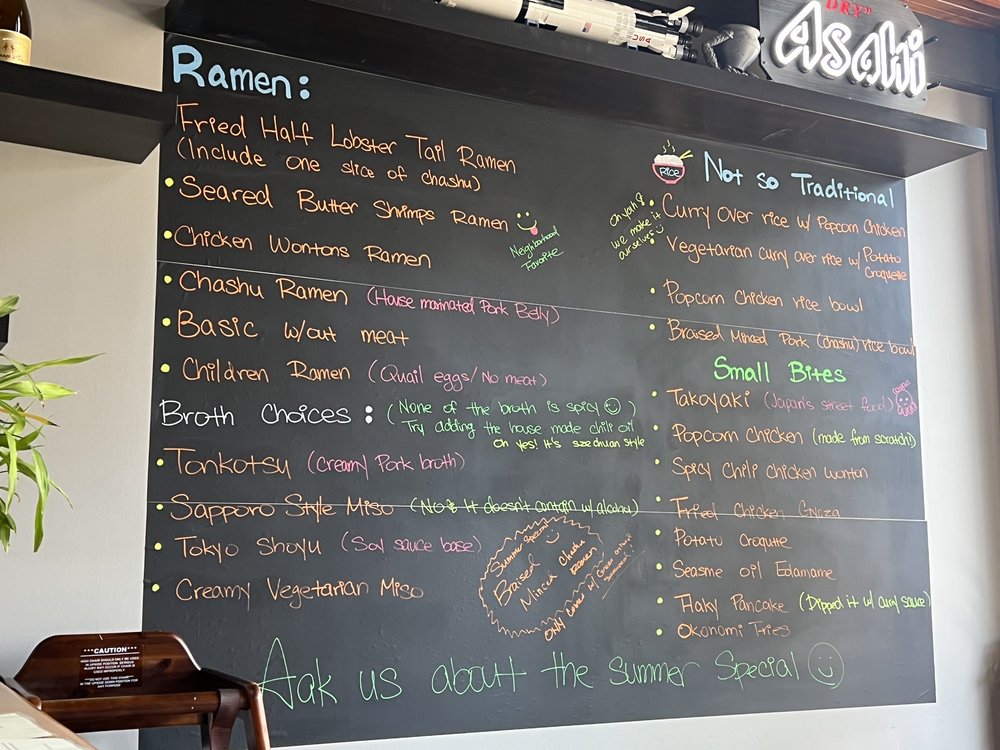 "DRY"
Asahi
USA
Ramen:
Fried Half Lobster Tail Ramen
(Include one slice of chashu)
• Seared Butter Shrimps Ramen
Neighborhood
Favorite
• Chicken Wontons Ramen
• Chashu Ramen (House marinated Pork Belly)
• Basic w/out meat
• Children Ramen (Quail eggs/No meat)
Broth Choices: (None of the broth is spicy ☺)
Try adding the house made chili oil
Oh yes! It's szechuan style
• Tonkotsu (Creamy Pork broth)
• Sapporo Style Miso (No! It doesn't contain w/alcohol)
• Tokyo Shoyu (Soy sauce base)
• Creamy Vegetarian Miso
Summer Special
Braised
Minced Chashu
Ramen
Rice
Not so Traditional
Oh yah!
we make it
ourselves
• Curry Over rice w/ Popcorn Chicken
• Vegetarian curry over rice w/ Potato
Croquette
• Popcorn Chicken rice bowl
• Braised Minced Pork (chashu) rice bowl
Small Bites
• Takoyaki (Japan's street food)
• Popcorn Chicken (made from scratch!)
• Spicy Chili Chicken Wonton
• Fried Chicken Gyoza
• Potato Croquette
• Seasme oil Edamame
• Flaky Pancake (Dipped it w/ curry sauce)
• Okonomi Fries
Aak us about the summer Special ☺
***CAUTION***
HIGH CHAIR SHOULD ONLY BE USED
IN UPSIDE POSITION. SERIOUS
INJURY MAY OCCUR IF CHAIR IS
USED IMPROPERLY.
**DO NOT USE THIS CHAIR**
IN THE UPSIDE DOWN POSITION FOR
ANY PURPOSE